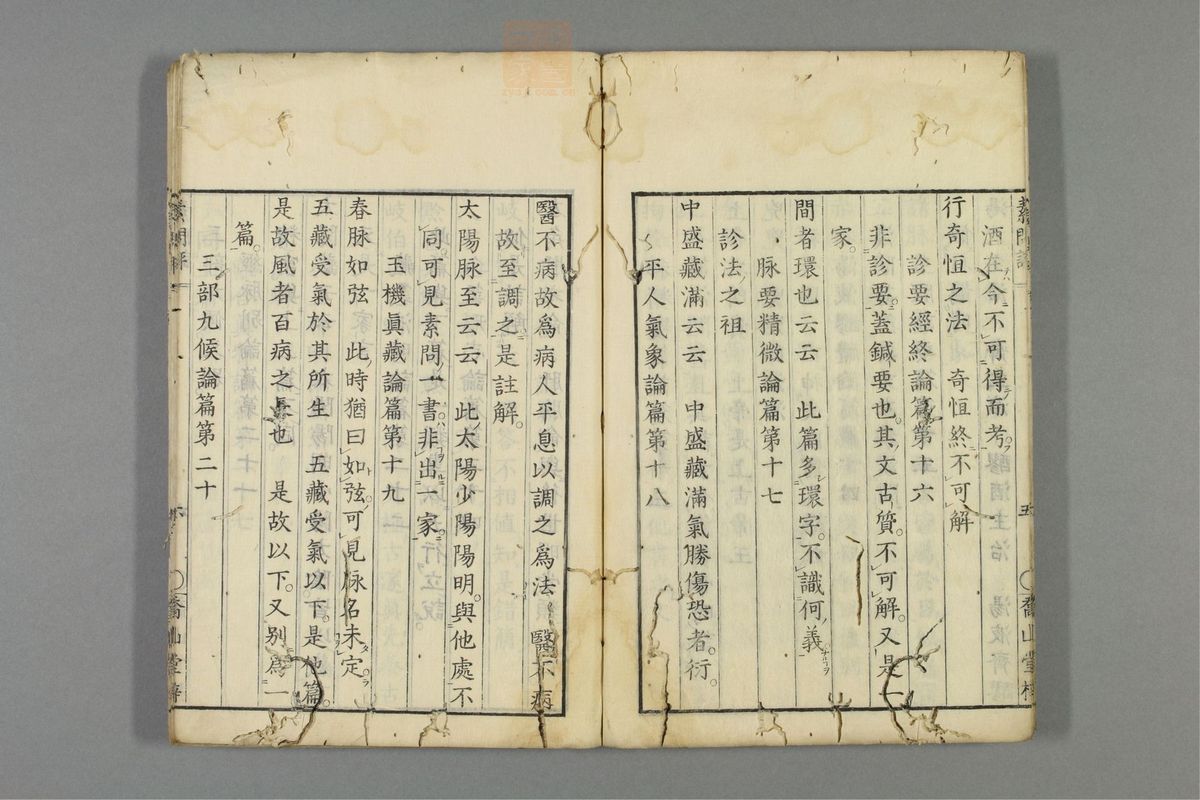 酒在今不可得而考。
行奇恒之法　奇恒終不可解
診要經終論篇第十六
非診要。蓋鍼要也。其文古質。不可解。又是一
家。
間者環也云云　此篇多環字。不識何義
脉要精微論篇第十七
診法之祖
中盛藏滿云云　中盛藏滿氣勝傷恐者。衍。
平人氣象論篇第十八
醫不病故爲病人平息以調之爲法　醫不病
故至調之是註解。
太陽脉至云云　此太陽少陽陽明。與他處不
同可見素問一書非出一家。
玉機眞藏論篇第十九
春脉如弦　此時猶曰如弦。可見脉名未定。
五藏受氣於其所生　五藏受氣以下。是他篇。
是故風者百病之長也　是故以下。又別爲一
篇。
三部九候論篇第二十